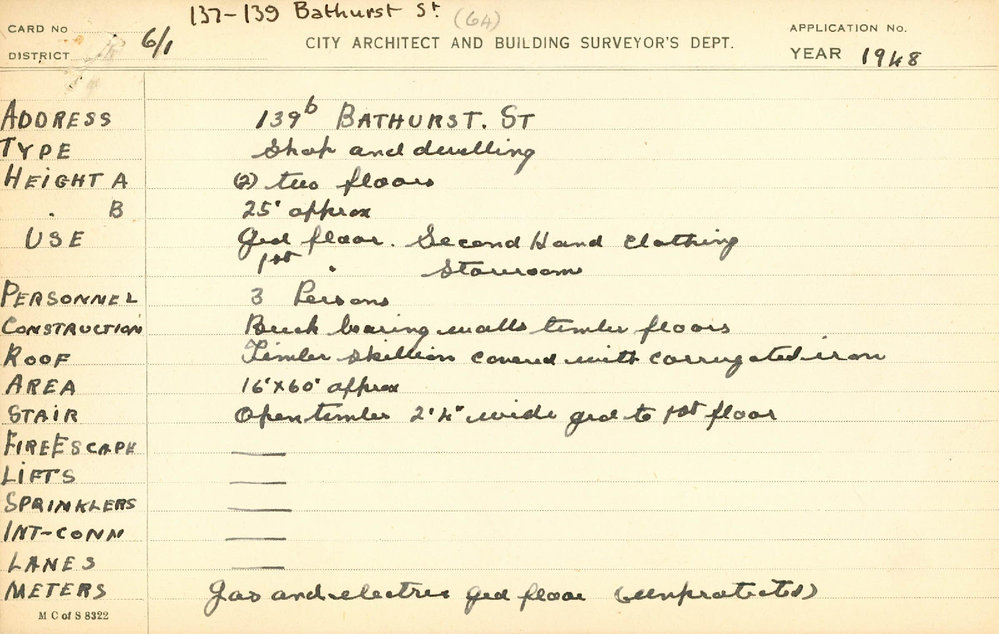 137-139 Bathurst St (64)
CARD NO
DISTRICT 6/1
CITY ARCHITECT AND BUILDING SURVEYOR'S DEPT.
APPLICATION NO.
YEAR 1948
ADDRESS 139b BATHURST. ST
TYPE Shop and dwelling
HEIGHT A (2) two floors
" B 25' approx
USE Grd floor. Second Hand Clothing
1st " Storeroom
PERSONNEL 3 Persons
CONSTRUCTION Brick bearing walls timber floors
ROOF Timber skillion covered with corrugated iron
AREA 16'x60' approx
STAIR Open timber 2'4" wide grd to 1st floor
FIRE ESCAPE —
LIFTS —
SPRINKLERS —
INT-CONN —
LANES —
METERS Gas and electric grd floor (unprotected)
M C of S 8322